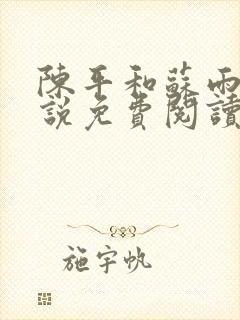 陳平和蘇雨
說免費閱讀
施宇帆